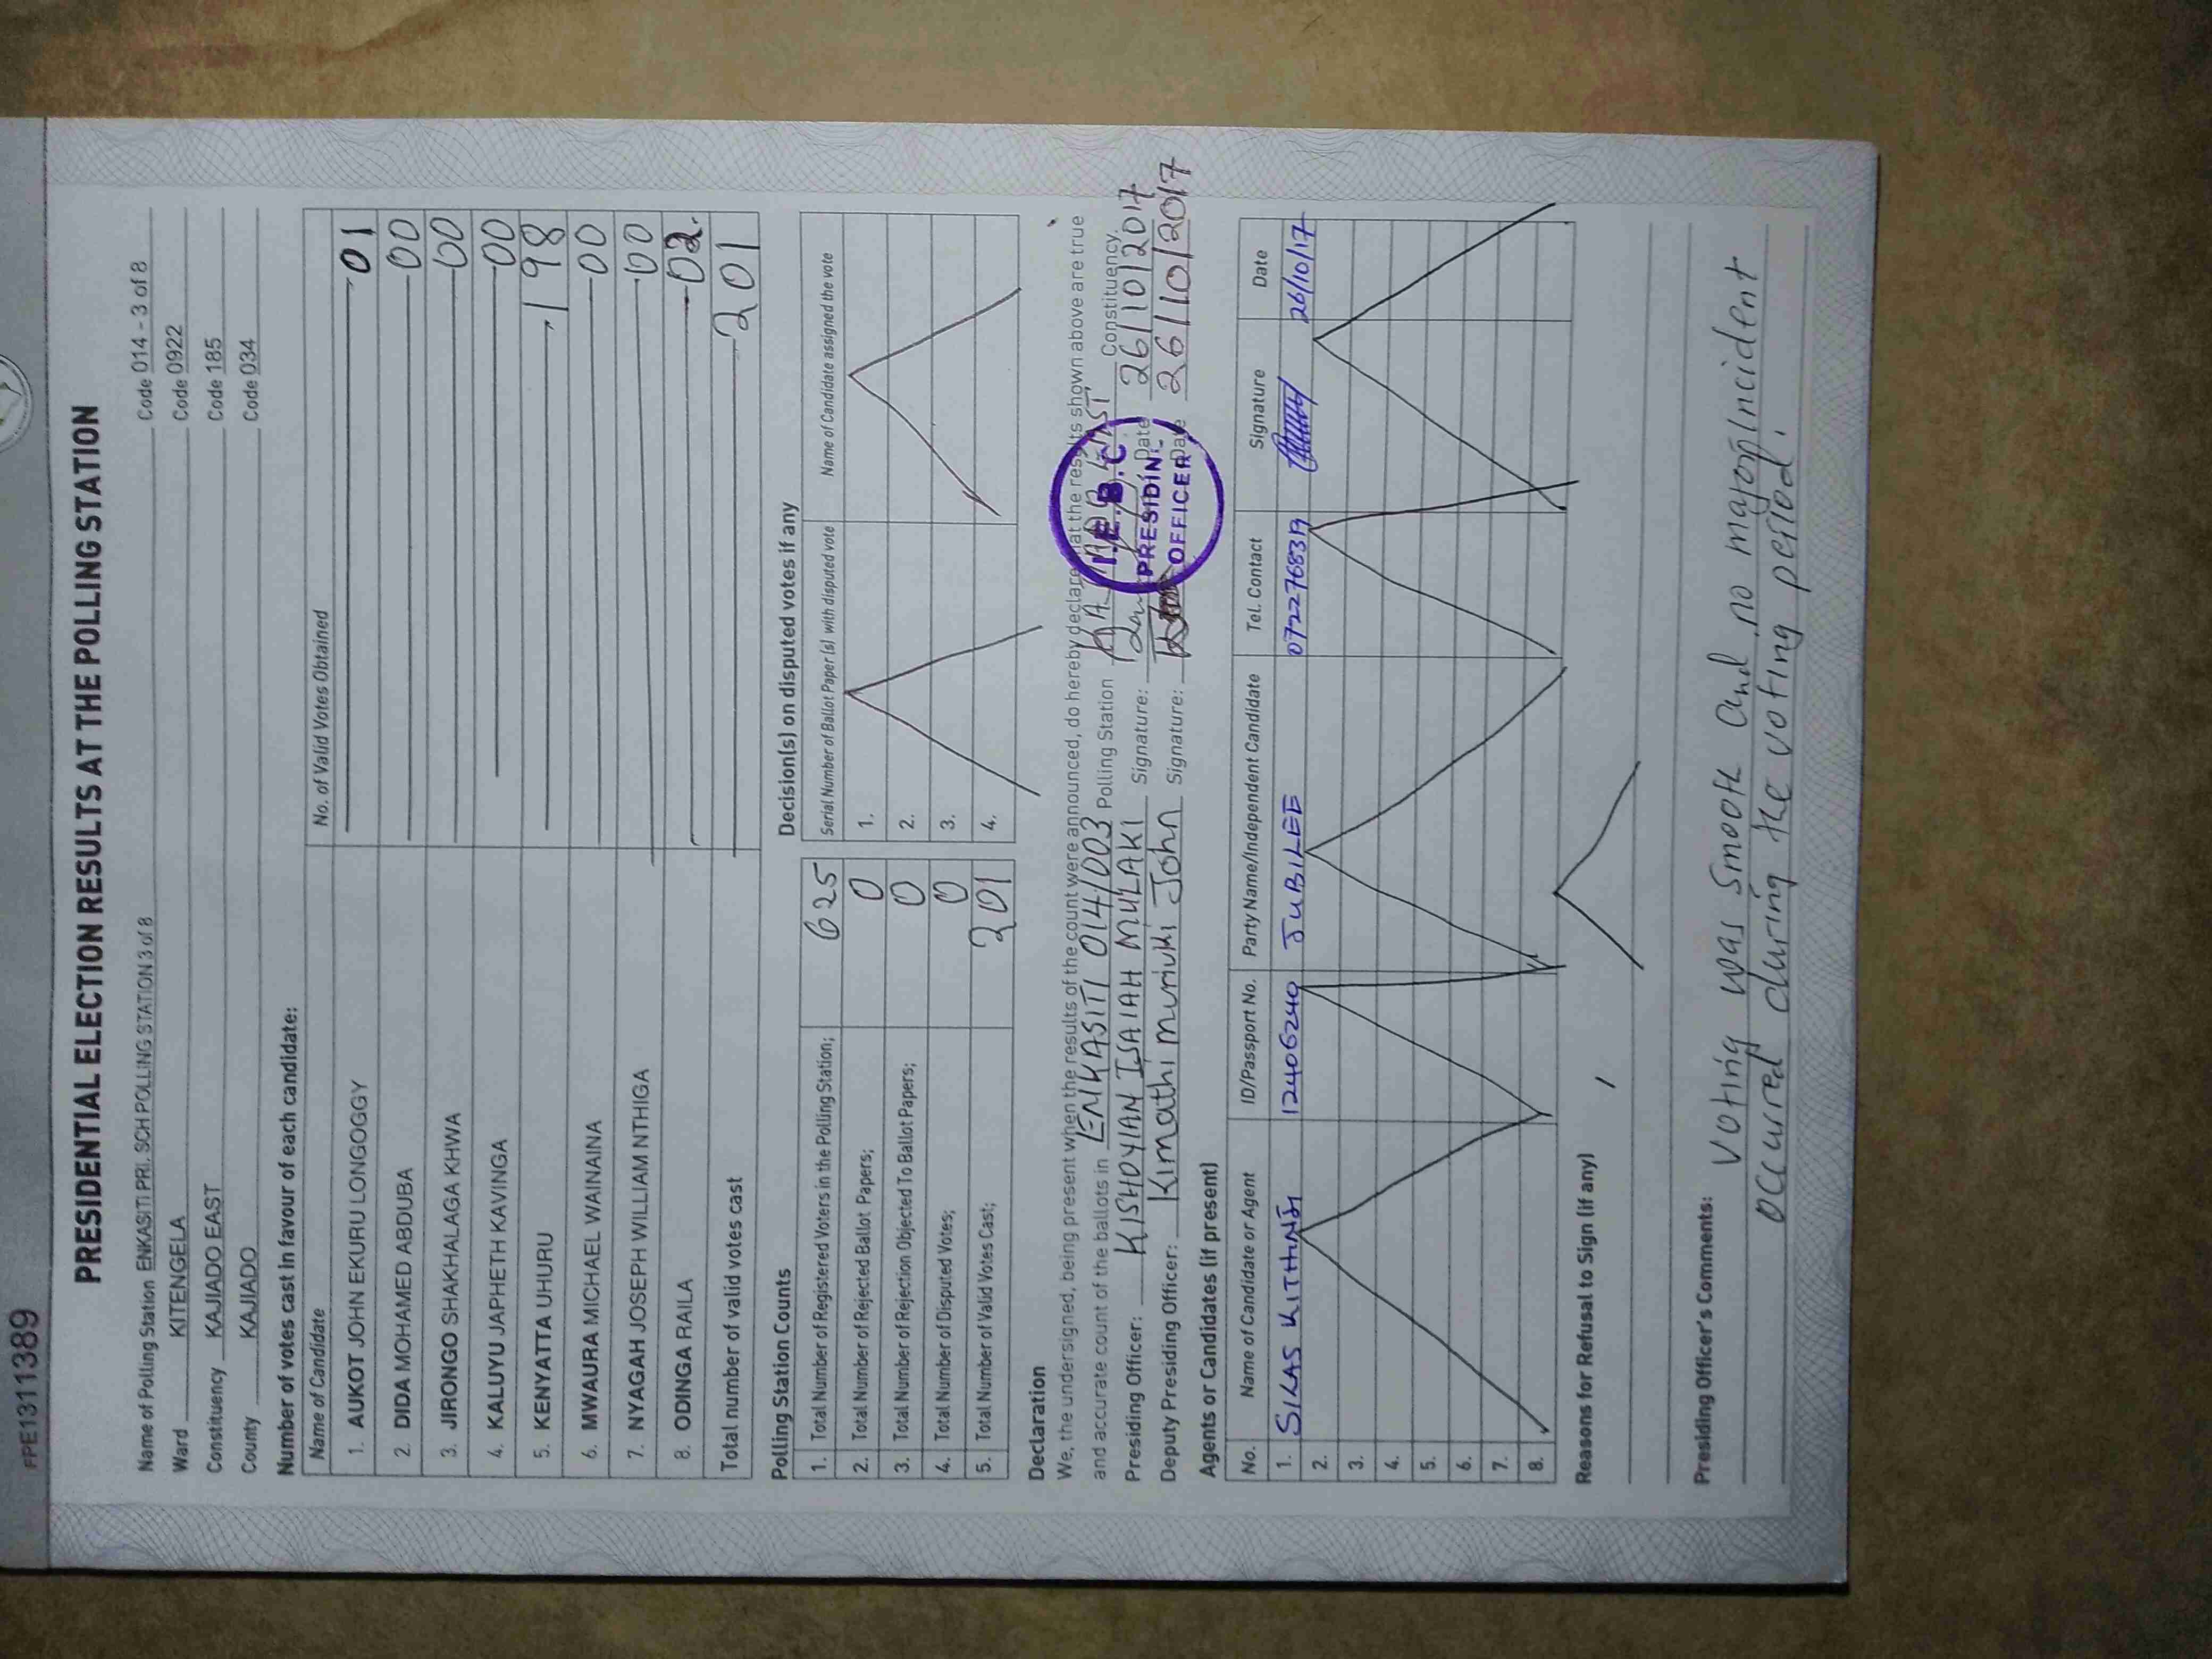 FPE1311389
PRESIDENTIAL ELECTION RESULTS AT THE POLLING STATION
Name of Polling Station ENKASITI PRI. SCH POLLING STATION 3 of 8 Code 014 - 3 of 8
Ward KITENGELA Code 0922
Constituency KAJIADO EAST Code 185
County KAJIADO Code 034
Number of votes cast in favour of each candidate:
Name of Candidate No. of Valid Votes Obtained
1. AUKOT JOHN EKURU LONGOGGY 01
2. DIDA MOHAMED ABDUBA 00
3. JIRONGO SHAKHALAGA KHWA 00
4. KALUYU JAPHETH KAVINGA 00
5. KENYATTA UHURU 198
6. MWAURA MICHAEL WAINAINA 00
7. NYAGAH JOSEPH WILLIAM NTHIGA 00
8. ODINGA RAILA 02.
Total number of valid votes cast 201
Polling Station Counts
1. Total Number of Registered Voters in the Polling Station; 625
2. Total Number of Rejected Ballot Papers; 0
3. Total Number of Rejection Objected To Ballot Papers; 0
4. Total Number of Disputed Votes; 0
5. Total Number of Valid Votes Cast; 201
Decision(s) on disputed votes if any
Serial Number of Ballot Paper (s) with disputed vote Name of Candidate assigned the vote
1.
2.
3.
4.
Declaration
We, the undersigned, being present when the results of the count were announced, do hereby declare that the results shown above are true
and accurate count of the ballots in ENKASITI 014/003 Polling Station EAST Constituency.
Presiding Officer: KISHOYIAN ISAIAH MULAKI Signature: Date 26/10/2017
Deputy Presiding Officer: Kimathi muriuki John Signature: Date 26/10/2017
I.E.B.C
PRESIDING
OFFICER
Agents or Candidates (if present)
No. Name of Candidate or Agent ID/Passport No. Party Name/Independent Candidate Tel. Contact Signature Date
1. SILAS KITHNJI 12406240 JUBILEE 0722768319 26/10/17
2.
3.
4.
5.
6.
7.
8.
Reasons for Refusal to Sign (if any)
Presiding Officer's Comments: Voting was smooth and no major incident
occurred during the voting period.